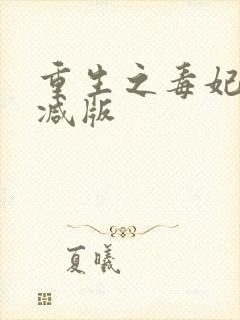 重生之毒妃
减版
夏曦